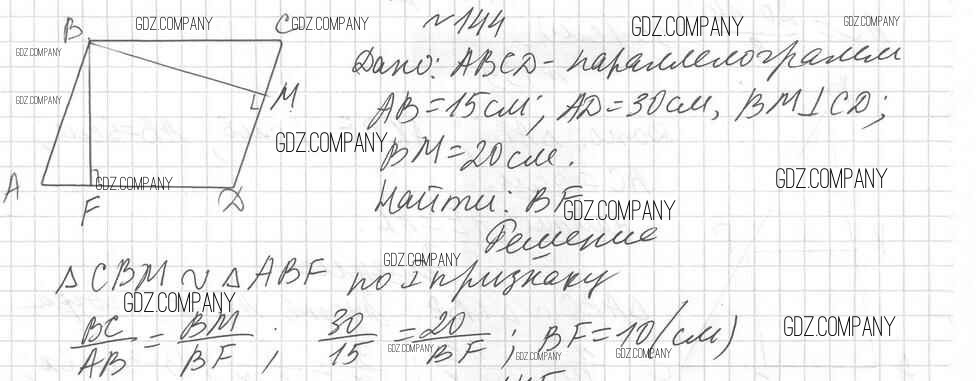 B GDZ.COMPANY C GDZ.COMPANY ~144 GDZ.COMPANY GDZ.COMPANY
GDZ.COMPANY Дано: ABCD - параллелограмм
GDZ.COMPANY M AB = 15 см; AD = 30 см, BM ⊥ CD;
GDZ.COMPANY BM = 20 см.
A GDZ.COMPANY GDZ.COMPANY
F D Найти: BF GDZ.COMPANY
Решение
GDZ.COMPANY
△CBM ~ △ABF по I признаку
GDZ.COMPANY
BC/AB = BM/BF ; 30/15 = 20/BF ; BF = 10 (см) GDZ.COMPANY
GDZ.COMPANY GDZ.COMPANY GDZ.COMPANY